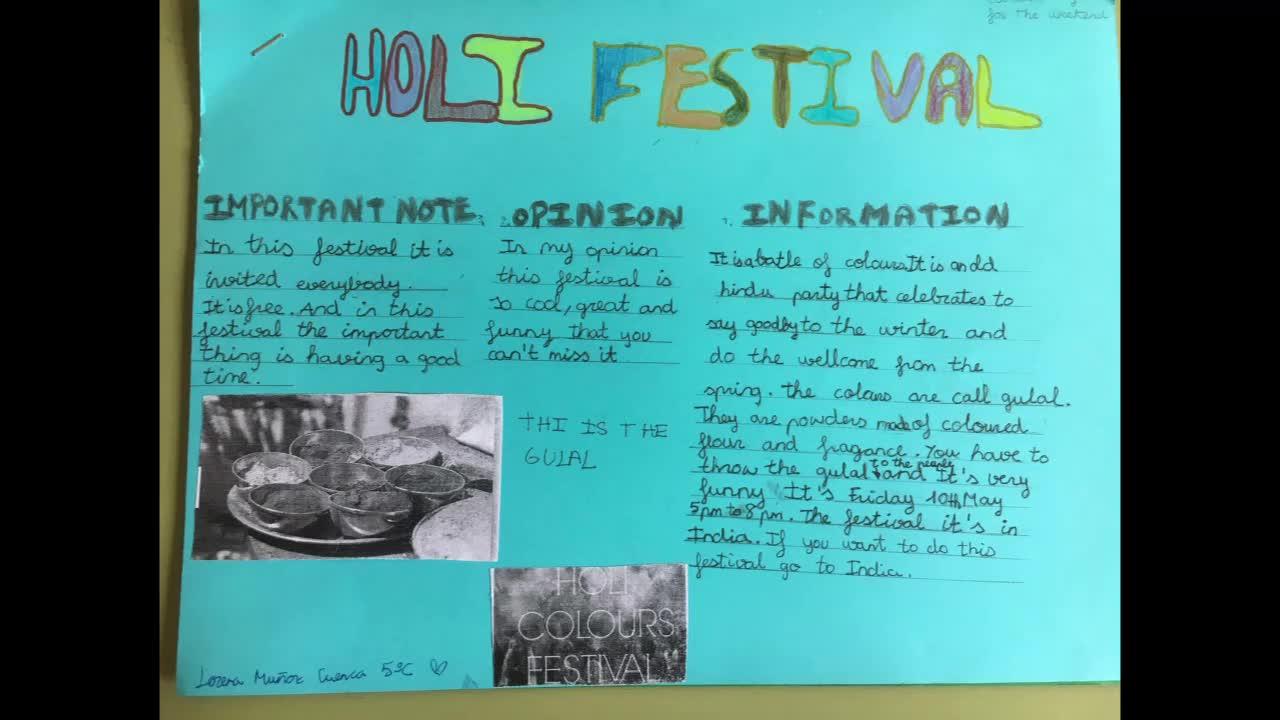 for the weekend
HOLI FESTIVAL
IMPORTANT NOTE
In this festival it is
invited everybody.
It is free. And in this
festival the important
thing is having a good
time.
2. OPINION
In my opinion
this festival is
so cool, great and
funny that you
can't miss it
1. INFORMATION
It is a batle of colours. It is an old
hindu party that celebrates to
say goodby to the winter and
do the wellcome from the
spring. the colours are call gulal.
They are powders made of coloured
flour and fragance. You have to
throw the gulal to the people and It's very
funny It's Friday 10th May
5pm to 8pm. The festival it's in
India. If you want to do this
festival go to India.
THI IS THE
GULAL
HOLI
COLOURS
FESTIVAL
Lorena Muñoz Cuenca 5ºC